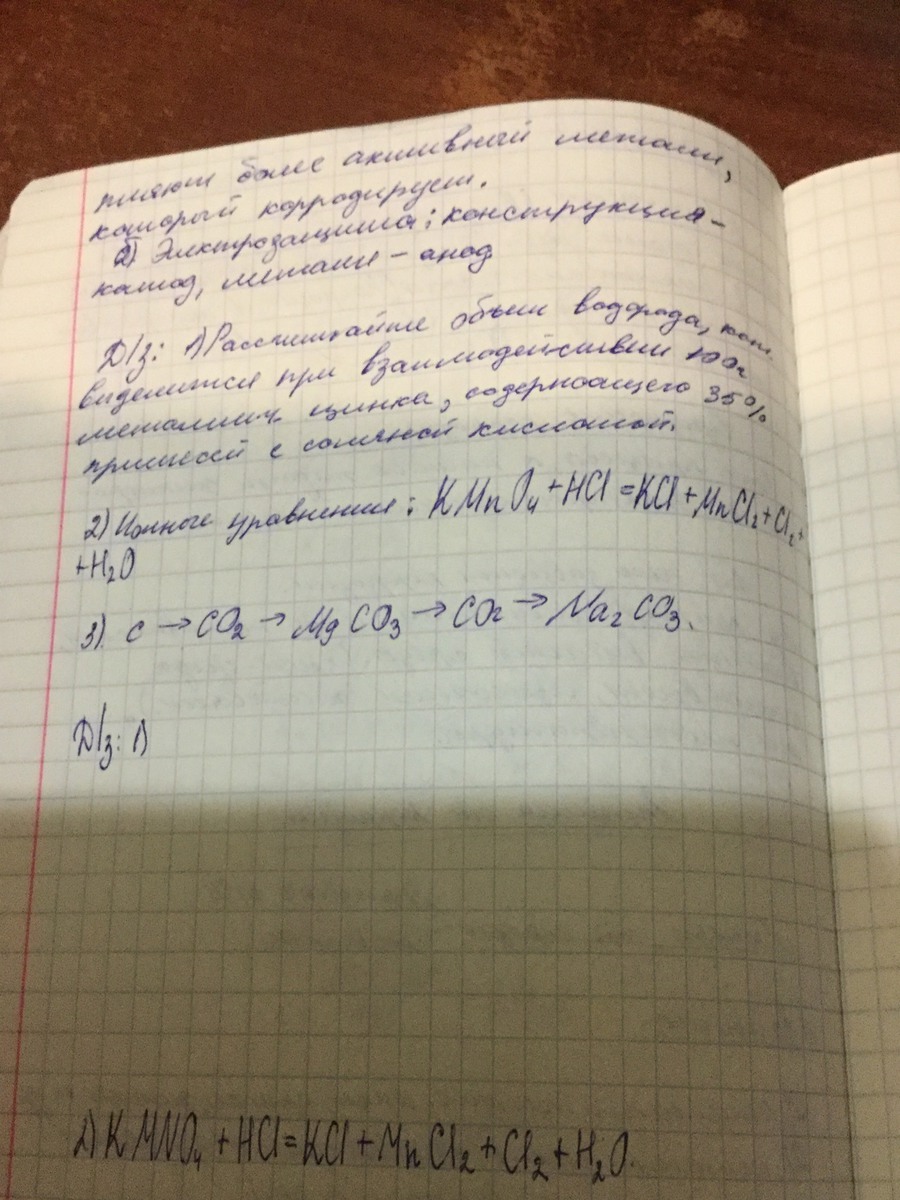 пляют более активный металл,
который корродирует.
2) Электрозащита; конструкция -
катод, металл - анод
Д/з: 1) Рассчитайте объем водорода, кот.
выделится при взаимодействии 100г
металлич. цинка, содержащего 35%
примесей с соляной кислотой.
2) Ионное уравнение: KMnO₄ + HCl = KCl + MnCl₂ + Cl₂ +
+H₂O
3) C → CO₂ → MgCO₃ → CO₂ → Na₂CO₃.
Д/з: 1)
2) KMNO₄ + HCl = KCl + MnCl₂ + Cl₂ + H₂O.